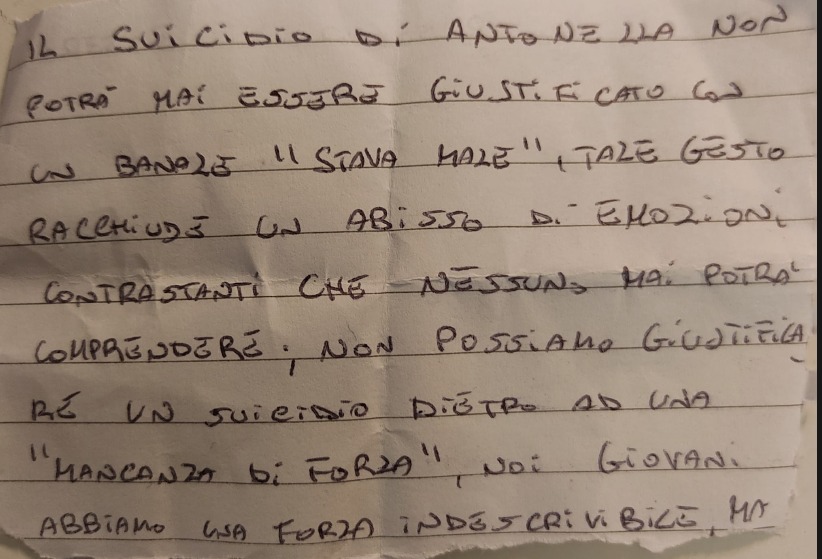 IL SUICIDIO DI ANTONELLA NON
POTRÀ MAI ESSERE GIUSTIFICATO CON
UN BANALE "STAVA MALE", TALE GESTO
RACCHIUDE UN ABISSO DI EMOZIONI
CONTRASTANTI CHE NESSUNO MAI POTRÀ
COMPRENDERE; NON POSSIAMO GIUSTIFICA
RE UN SUICIDIO DIETRO AD UNA
"MANCANZA DI FORZA", NOI GIOVANI
ABBIAMO UNA FORZA INDESCRIVIBILE, MA